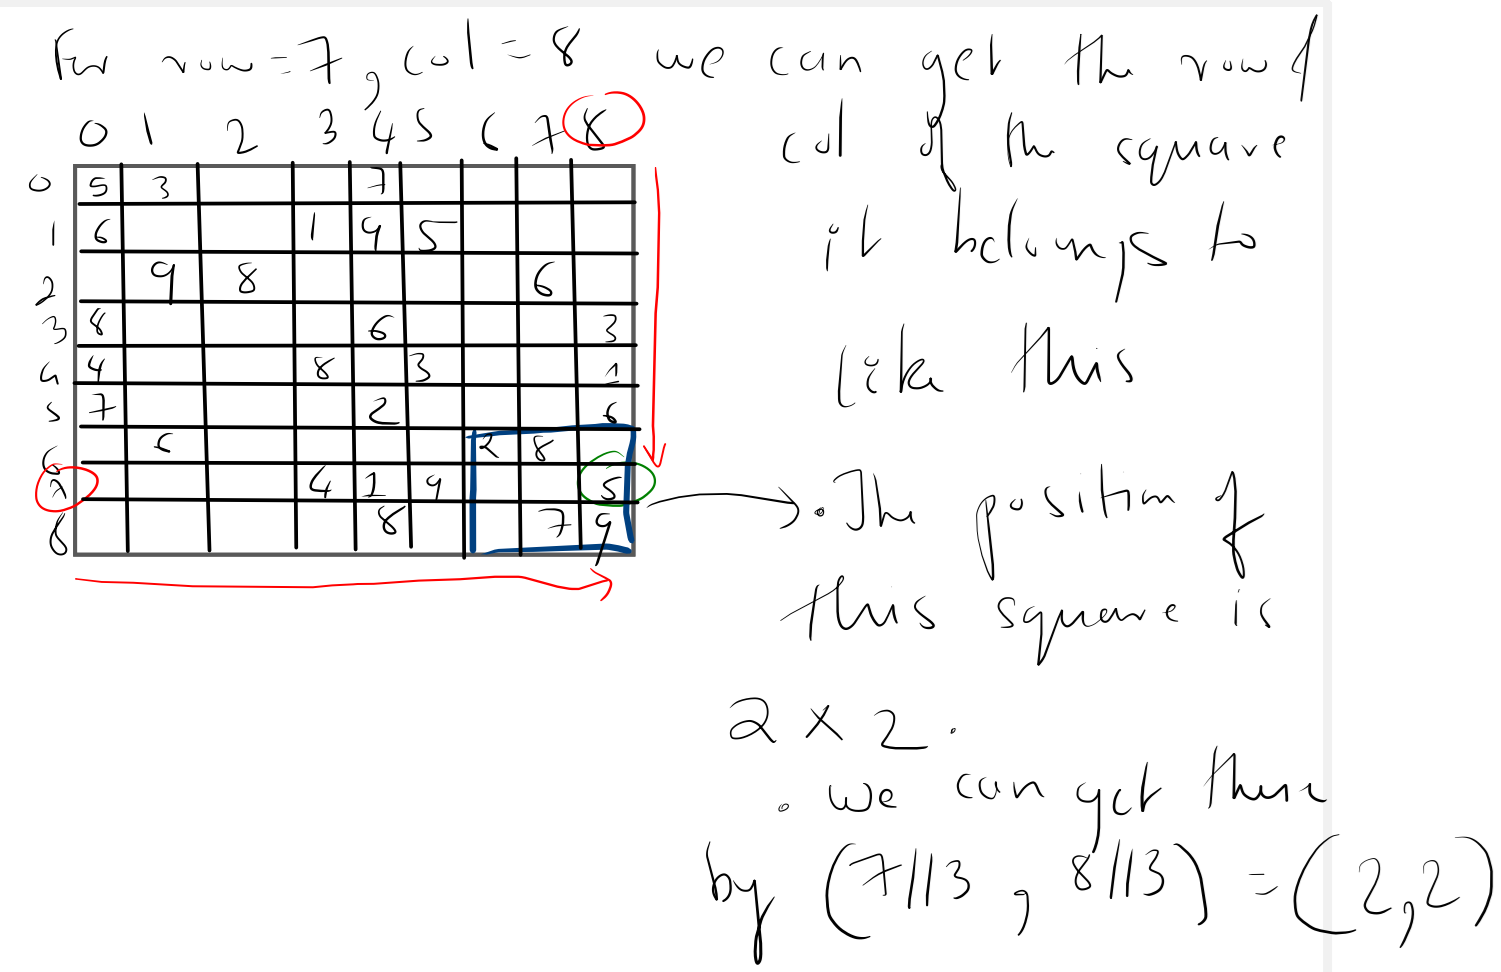 For row=7, col=8 we can get the row/
col of the square
it belongs to
like this
0 1 2 3 4 5 6 7 8
0 5 3 7
1 6 1 9 5
2 9 8 6
3 8 6 3
4 4 8 3 1
5 7 2 6
6 6 2 8
7 4 1 9 5
8 8 7 9
. The position of
this square is
2 x 2 .
. we can get there
by (7//3 , 8//3) = (2,2)